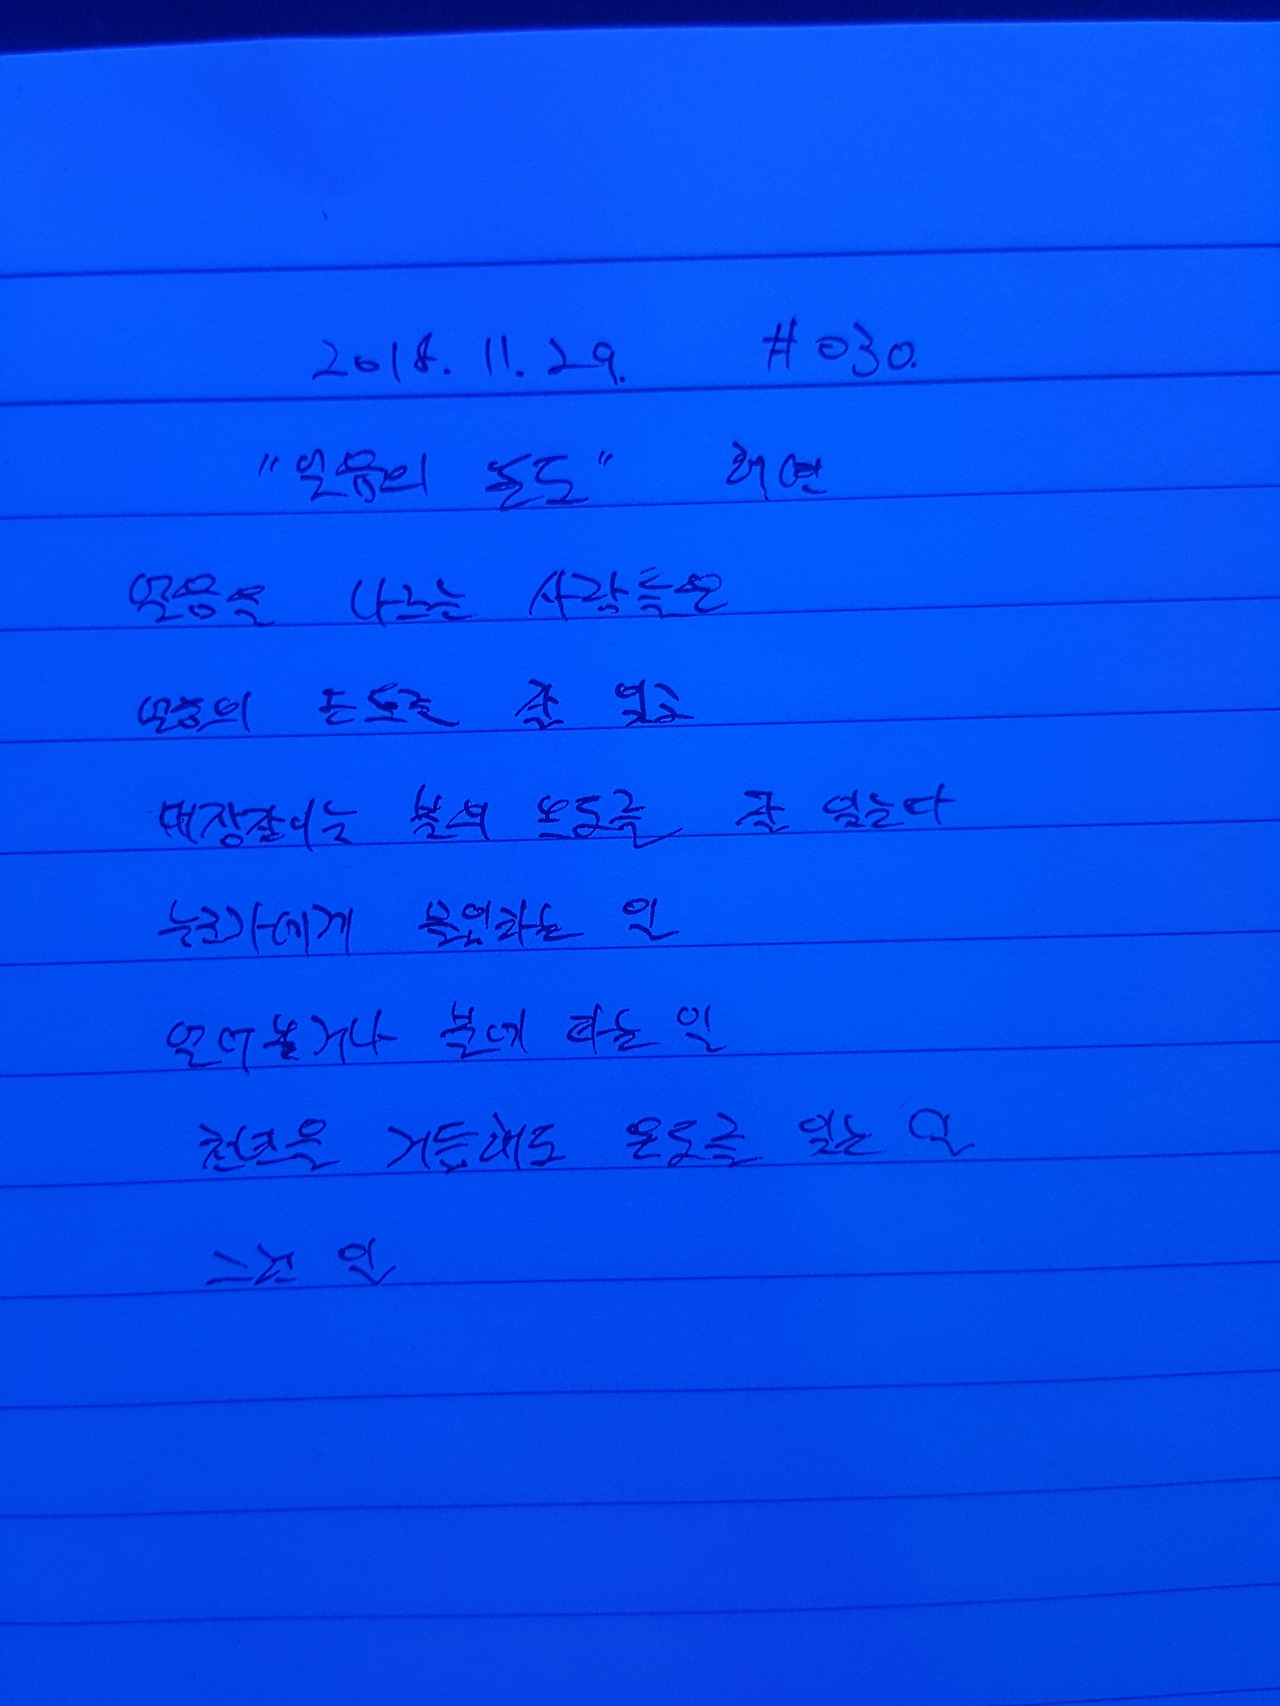 2018. 11. 29. #030.
"얼음의 온도" 허연
얼음을 나르는 사람들은
얼음의 온도를 잘 잊고
대장장이는 불의 온도를 잘 잊는다
누군가에게 몰입하는 일
얼어붙거나 불에 타는 일
천년을 거듭해도 온도를 잊는 일
그런 일